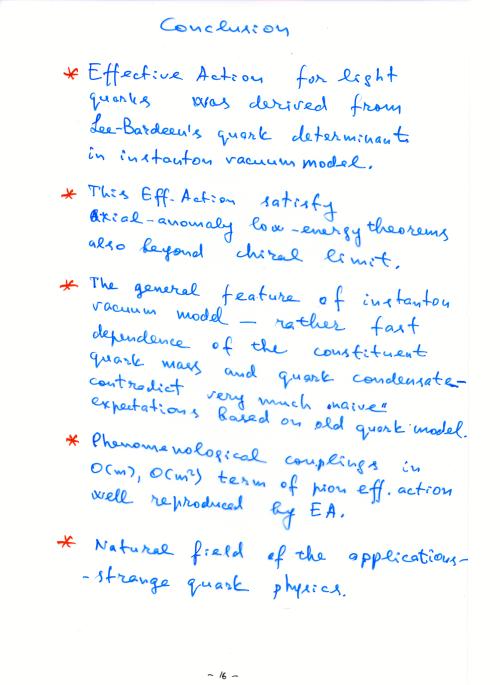 Conclusion
* Effective Action for light
quarks was derived from
Lee-Bardeen's quark determinant
in instanton vacuum model.
* This Eff. Action satisfy
Axial-anomaly low-energy theorems
also beyond chiral limit.
* The general feature of instanton
vacuum model — rather fast
dependence of the constituent
quark mass and quark condensate —
contradict very much „naive"
expectations based on old quark model.
* Phenomenological couplings in
O(m), O(m²) term of pion eff. action
well reproduced by EA.
* Natural field of the applications-
- strange quark physics.
- 16 -